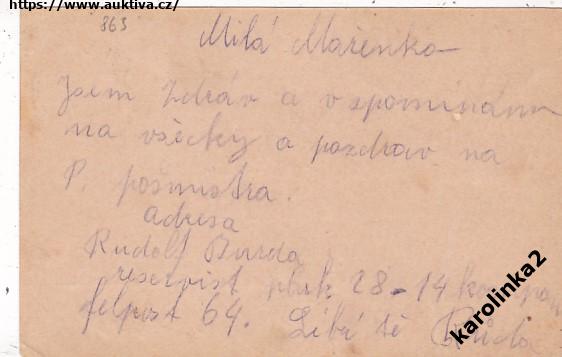 https://www.auktiva.cz/
863
Milá Mařenko
Jsem zdráv a vzpomínám
na všecky a pozdrav na
P. pošmistra.
adresa
Rudolf Burda
reservist pluk 28-14 kompan
felpost 64. Líbá tě
karolinka2